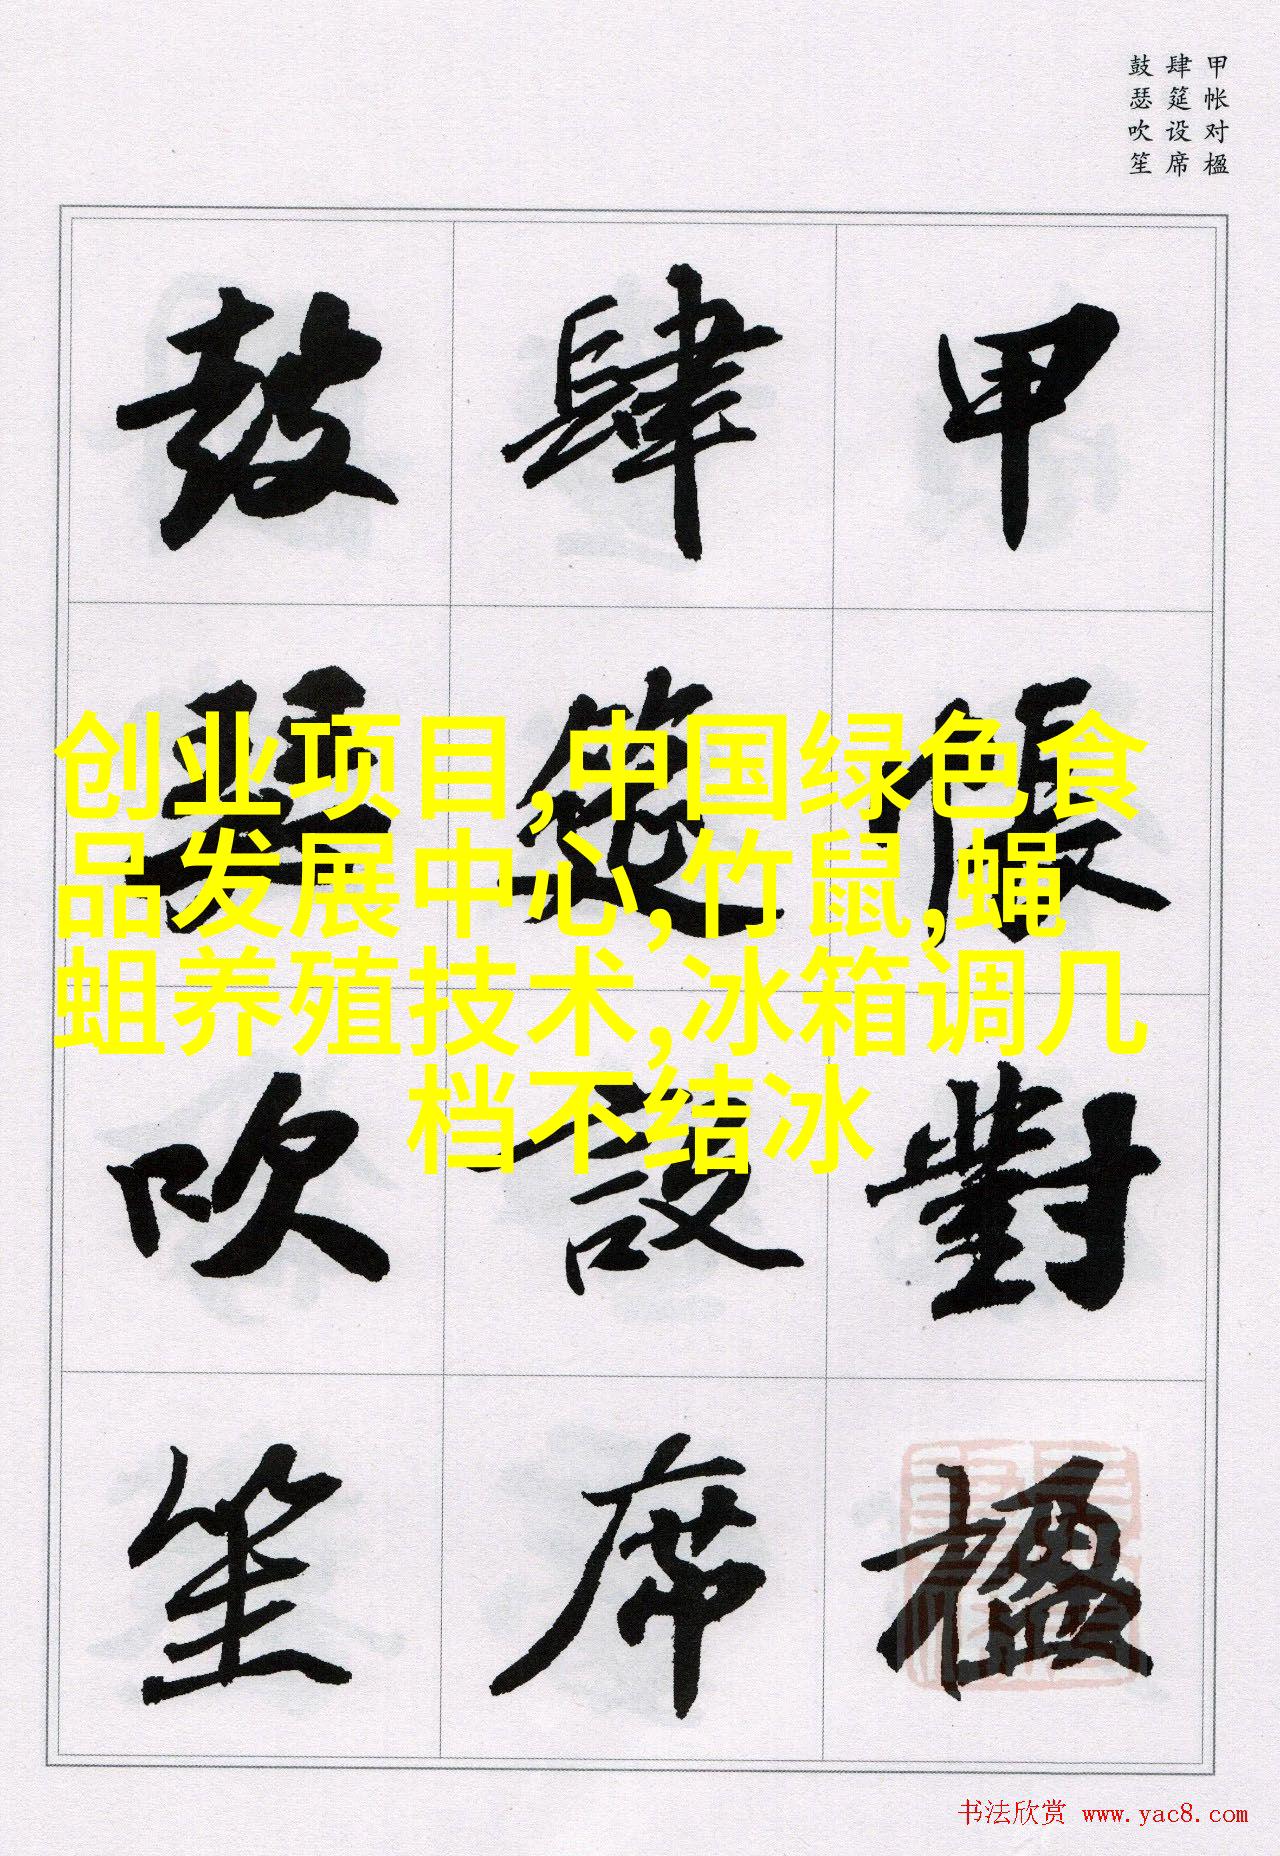 甲帐对楹
肆筵设席
鼓瑟吹笙
甲帳對楹
肆筵設席
鼓瑟吹笙
创业项目,中国绿色食
品发展中心,竹鼠,蝇
蛆养殖技术,冰箱调几
档不结冰
书法欣赏 www.yac8.com